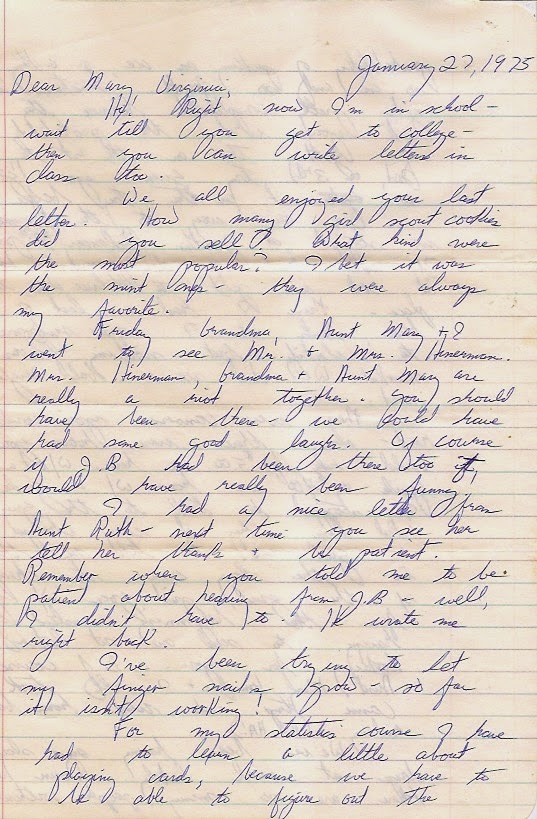 January 27, 1975
Dear Mary Virginia,
Hi! Right now I'm in school -
wait till you get to college -
then you can write letters in
class too.
We all enjoyed your last
letter. How many girl scout cookies
did you sell? What kind were
the most popular? I bet it was
the mint ones - they were always
my favorite.
Friday Grandma, Aunt Mary + I
went to see Mr. + Mrs. Hinerman.
Mrs. Hinerman, Grandma + Aunt Mary are
really a riot together. You should
have been there - we could have
had some good laughs. Of course
if J.B had been there too it
would have really been funny.
I had a nice letter from
Aunt Ruth - next time you see her
tell her thanks + be patient.
Remember when you told me to be
patient about hearing from J.B - well,
I didn't have to. He wrote me
right back.
I've been trying to let
my finger nails grow - so far
it isn't working!
For my statistics course I have
had to learn a little about
playing cards, because we have to
be able to figure out the